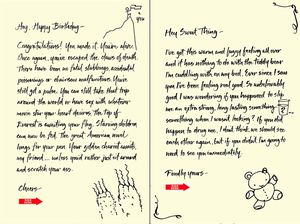 Hey, Happy Birthday -
Congratulations! You made it. You're alive.
Once again, you've escaped the claws of death.
There have been no fatal stabbings, accidental
poisonings or chainsaw malfunctions. You're
still got a pulse. You can still take that trip
around the world or have sex with whatever
movie star your heart desires. The top of
Everest is awaiting your flag. Starving children
can now be fed. The great American novel
longs for your pen. Your golden chariot awaits,
my friend... unless you'd rather just sit around
and scratch your ass.
Cheers -
Hey Sweet Thing -
I've got this warm and fuzzy feeling all over
and it has nothing to do with the Teddy bear
I'm cuddling with on my bed. Ever since I saw
you I've been feeling real good. So unbelievably
good I was wondering if you happened to slip
me an extra strong, long lasting something
something when I wasn't looking? If you did
happen to drug me, I don't think we should see
each other again, but if you didn't I'm going to
need to see you immediately.
Fondly yours -